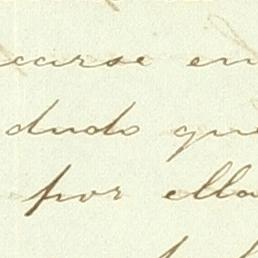 carse en
dudo que
por ella